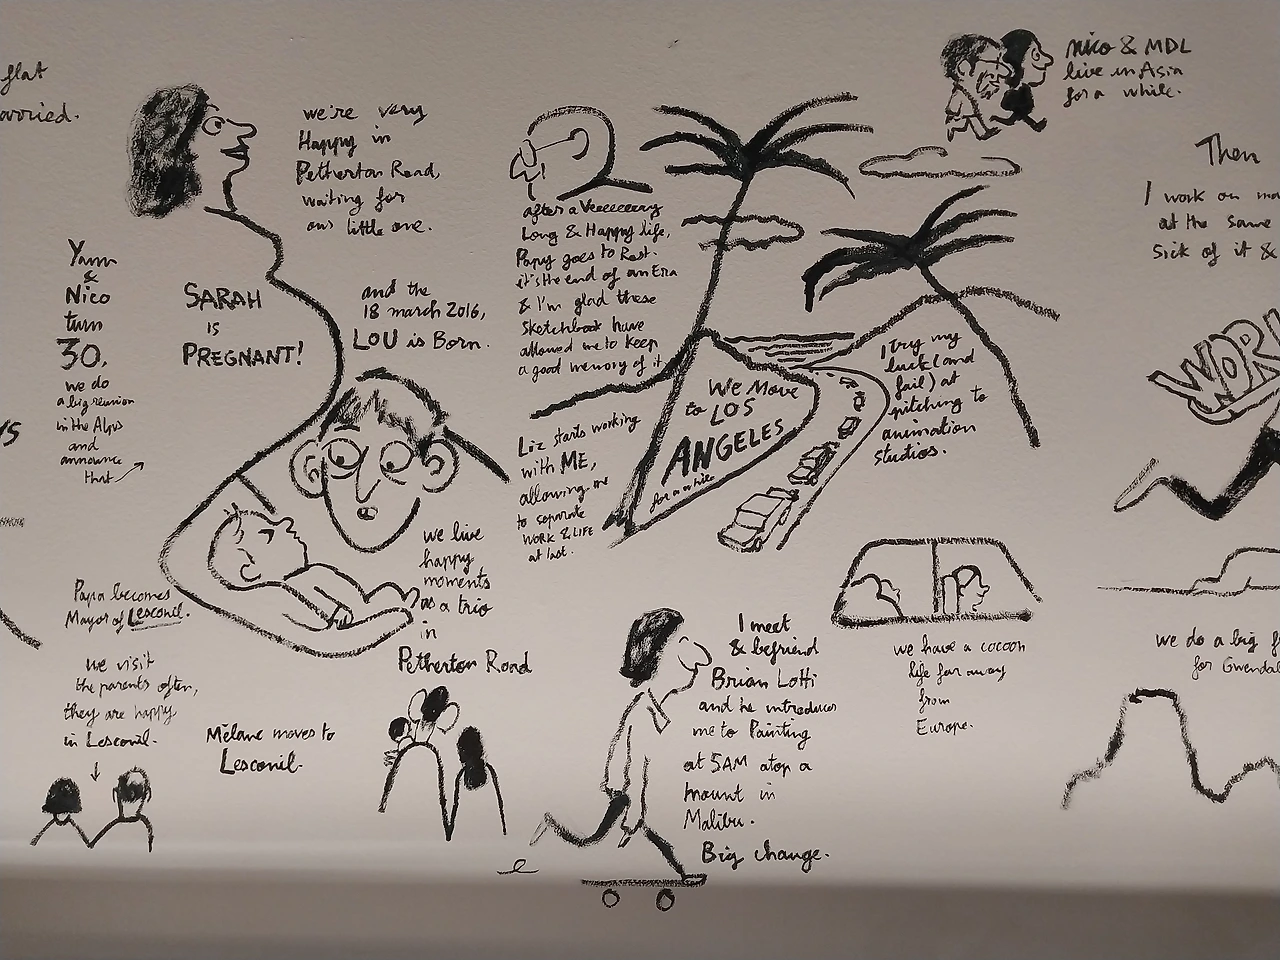 flat
Yann
&
Nico
turn
30.
we do
a big reunion
in the Alps
and
announce
that
SARAH
IS
PREGNANT!
we're very
Happy in
Petherton Road,
waiting for
our little one.
and the
18 march 2016,
LOU is Born.
we live
happy
moments
as a trio
in
Petherton Road
Papa becomes
Mayor of Lesconil.
we visit
the parents often,
they are happy
in Lesconil.
Mélane moves to
Lesconil.
after a Veeeeeeery
Long & Happy life,
Papy goes to Rest.
it's the end of an Era
& I'm glad these
sketchbook have
allowed me to keep
a good memory of it
Liz starts working
with ME,
allowing me
to separate
WORK & LIFE
at last.
We Move
to LOS
ANGELES
for a while
I try my
luck (and
fail) at
pitching to
animation
studios.
nico & MDL
live in Asia
for a while.
I meet
& befriend
Brian Lotti
and he introduces
me to Painting
at 5AM atop a
mount in
Malibu.
Big change.
we have a cocoon
life far away
from
Europe.
Then
I work on
at the same
sick of it &
WORK
we do a big
for Gwendal